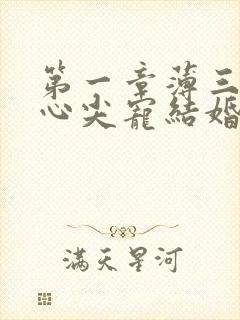 第一章薄三
心尖寵結婚
滿天星河